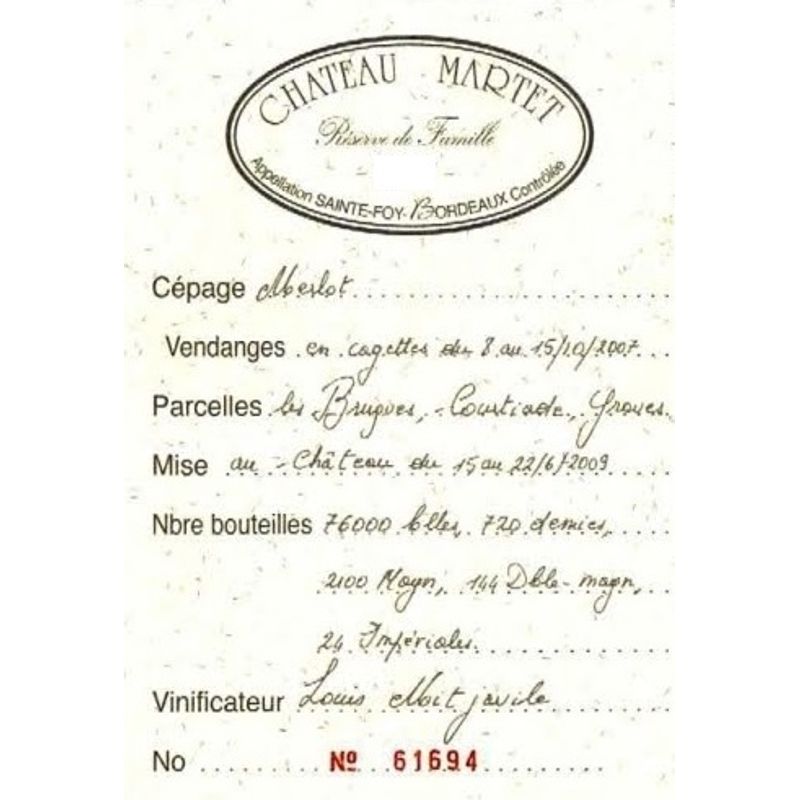 CHATEAU MARTET
Réserve de Famille
Appellation SAINTE-FOY-BORDEAUX Contrôlée
Cépage Merlot
Vendanges en cagettes du 8 au 15/10/2007
Parcelles les Brugues, Courtiade, Graves
Mise au Château du 15 au 22/6/2009
Nbre bouteilles 76000 blles, 720 demies,
2100 Magn, 144 Dble-magn,
24 Impériales
Vinificateur Louis Mitjavile
No Nº 61694